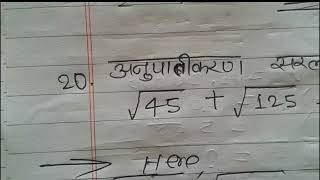 20. अनुपातीकरण सरल
√45 + √125
→ Here